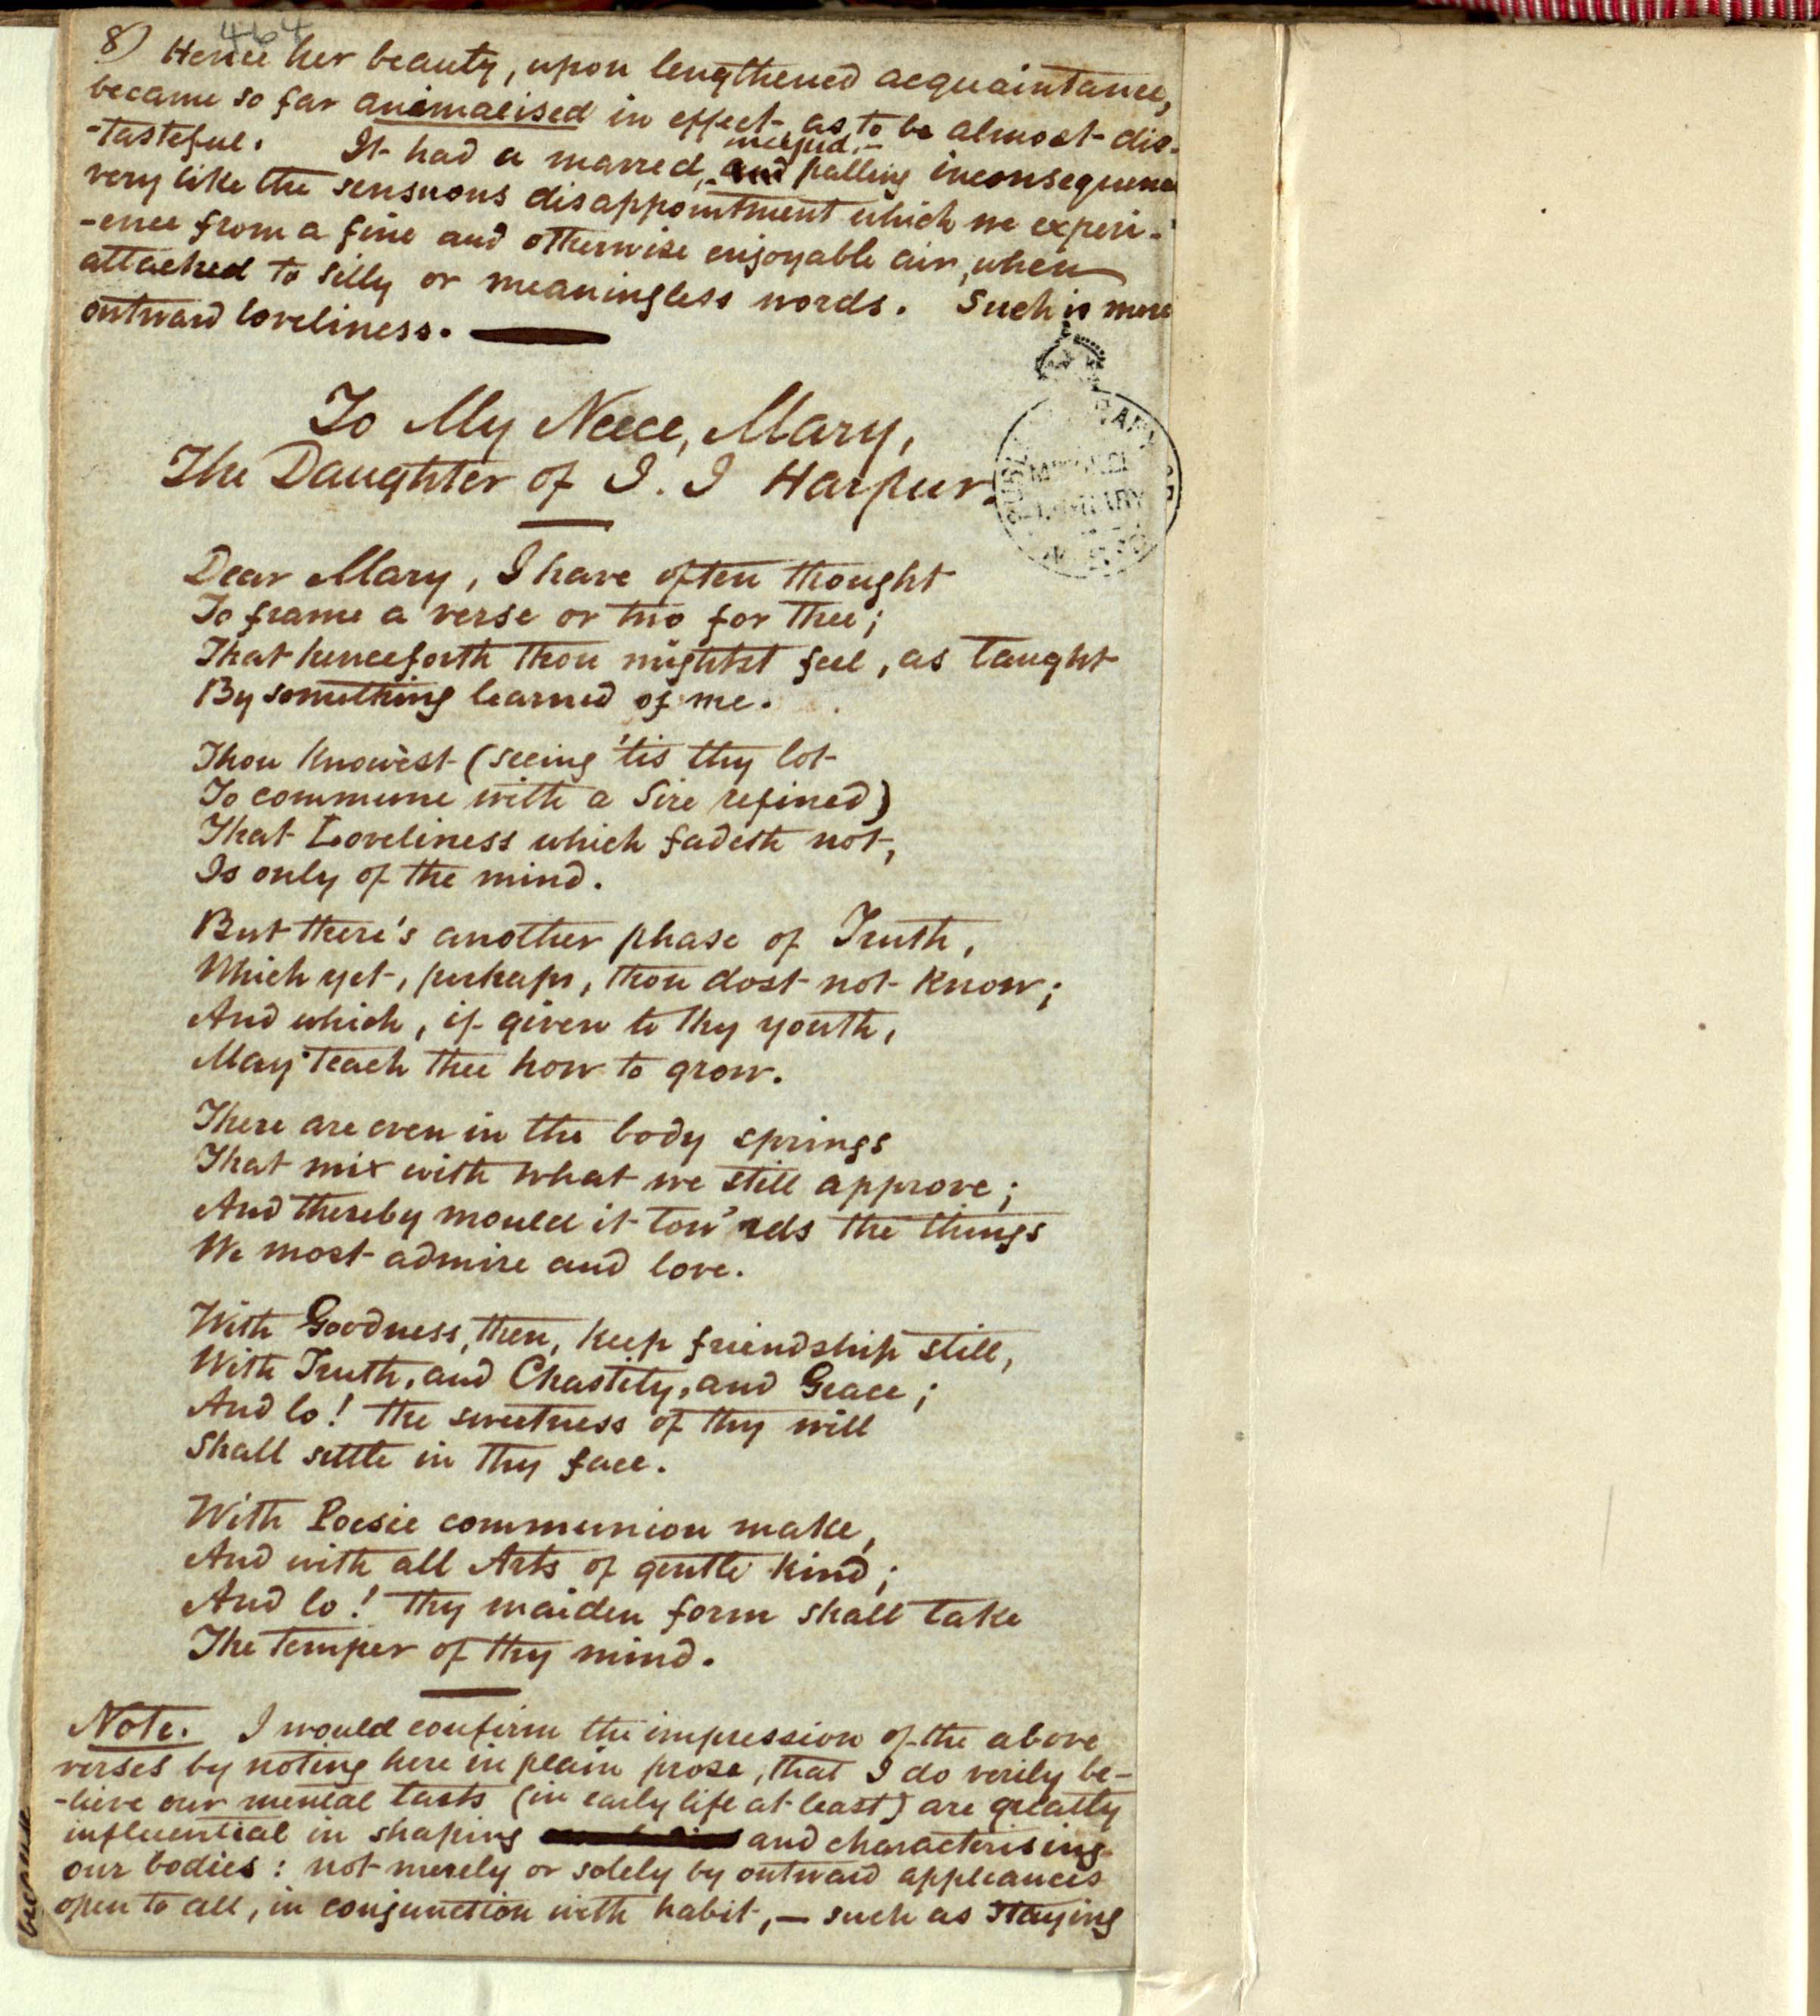 464
8) Hence her beauty, upon lengthened acquaintance,
became so far animalised in effect as to be almost dis-
-tasteful. It had a marred, and palling inconsequence
very like the sensuous disappointment which we experi-
-ence from a fine and otherwise enjoyable air, when
attached to silly or meaningless words. Such is mere
outward loveliness.
To My Neece, Mary,
The Daughter of J. J Harpur.
Dear Mary, I have often thought
To frame a verse or two for thee;
That henceforth thou mightst feel, as taught
By something learned of me.
Thou knowèst (seeing 'tis thy lot
To commune with a Sire refined)
That Loveliness which fadeth not,
Is only of the mind.
But there's another phase of Truth,
Which yet, perhaps, thou dost not know;
And which, if given to thy youth,
May teach thee how to grow.
There are even in the body springs
That mix with what we still approve;
And thereby mould it tow'rds the things
We most admire and love.
With Goodness, then, keep friendship still,
With Truth, and Chastity, and Grace;
And lo! the sweetness of thy will
Shall settle in thy face.
With Poesie communion make,
And with all Arts of gentle kind;
And lo! thy maiden form shall take
The temper of thy mind.
Note. I would confirm the impression of the above
verses by noting here in plain prose, that I do verily be-
-lieve our mental tasts (in early life at least) are greatly
influential in shaping and characterising
our bodies: not merely or solely by outward appliances
open to all, in conjunction with habit, — such as staying